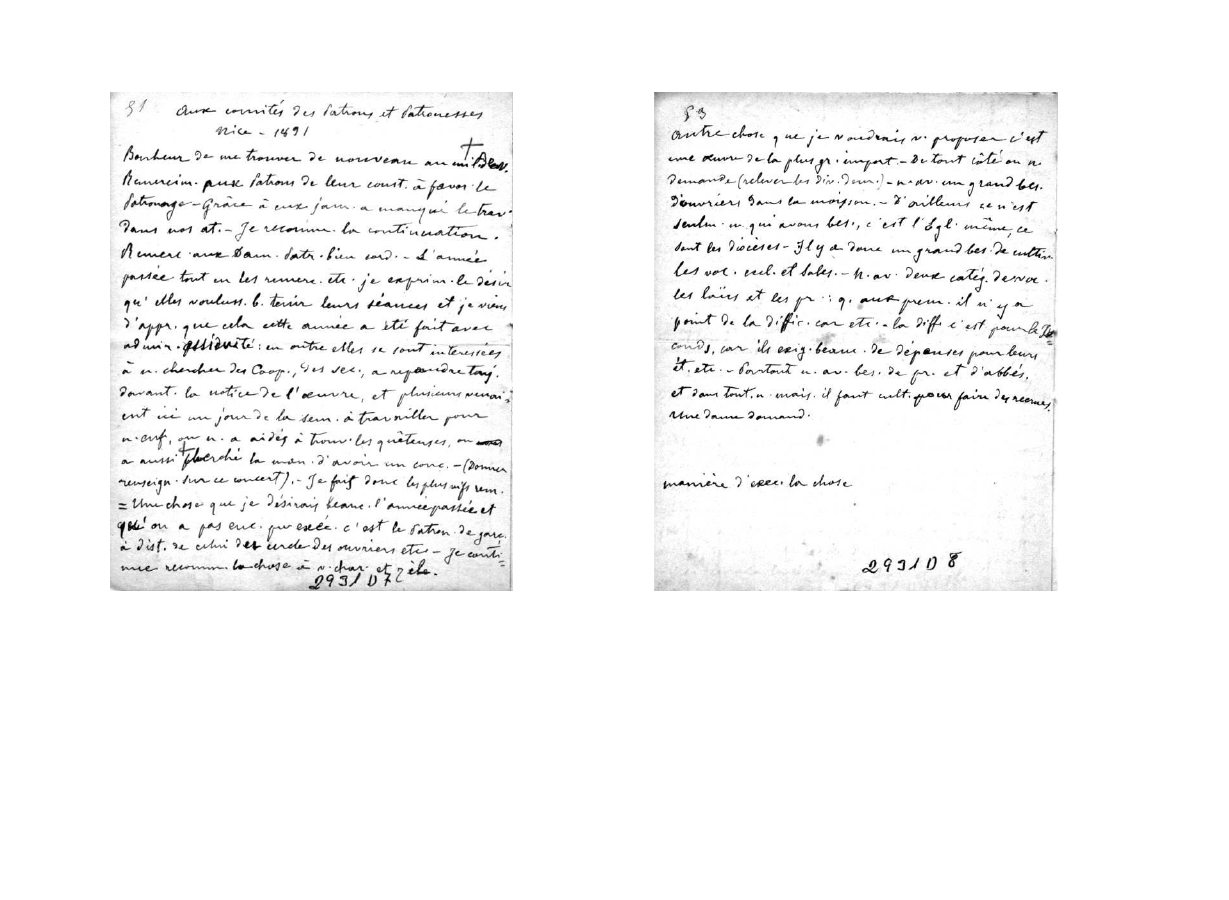 51
Aux comités des Patrons et Patronesses
Nice - 1891
Bonheur de me trouver de nouveau au mil.
Remercim. aux Patrons de leur const. à favor. le
Patronage - Grâce à eux jam. a manqué le trav.
dans nos at. - Je recomm. la continuation.
Remerc. aux Dam. Patr. bien cord. - L'année
passée tout en les remerc. etc. je exprim. le désir
qu'elles vouluss. b. tenir leurs séances et je viens
d'appr. que cela cette année a été fait avec
admir. assiduité : en outre elles se sont interessées
à n. chercher des Coop., des sec., a repandre touj.
davant. la notice de l'œuvre, et plusieurs venai=
ent ici un jour de la sem. à travailler pour
n. enf., on n. a aidés à trouv. les quêteuses, on
a aussi cherché la man. d'avoir un conc. - (Donner
renseign. sur ce concert). - Je fais donc les plus vifs rem.
= Une chose que je désirais beauc. l'année passée et
qu'on a pas enc. pu exéc. c'est le Patron. de garç.
à dist. de celui des cercle des ouvriers etc - Je conti=
nue recomm. la chose à v. char. et zèle.
2931 D 7
53
Autre chose que je voudrais v. proposer c'est
une œuvre de la plus gr. import. - De tout côté on n.
demande (relever les div. dem.) - n. av. un grand bes.
d'ouvriers dans la moisson. - D'ailleurs ce n'est
seulm. n. qui avons bes., c'est l'Egl. même, ce
sont les diocèses - Il y a donc un grand bes. de cultiv.
les voc. eccl. et Sales. - N. av. deux catég. de voc.
les laïcs et les pr. : q. aux prem. il n'y a
point de la diffic. car etc. - la diff. c'est pour le Se=
conds, car ils exig. beauc. de dépenses pour leurs
ét. etc. - Partout n. av. bes. de pr. et d'abbés,
et dans tout. n. mais. il faut cult. pour faire des recrues.
Une dame demand.
manière d'exéc. la chose
2931 D 8